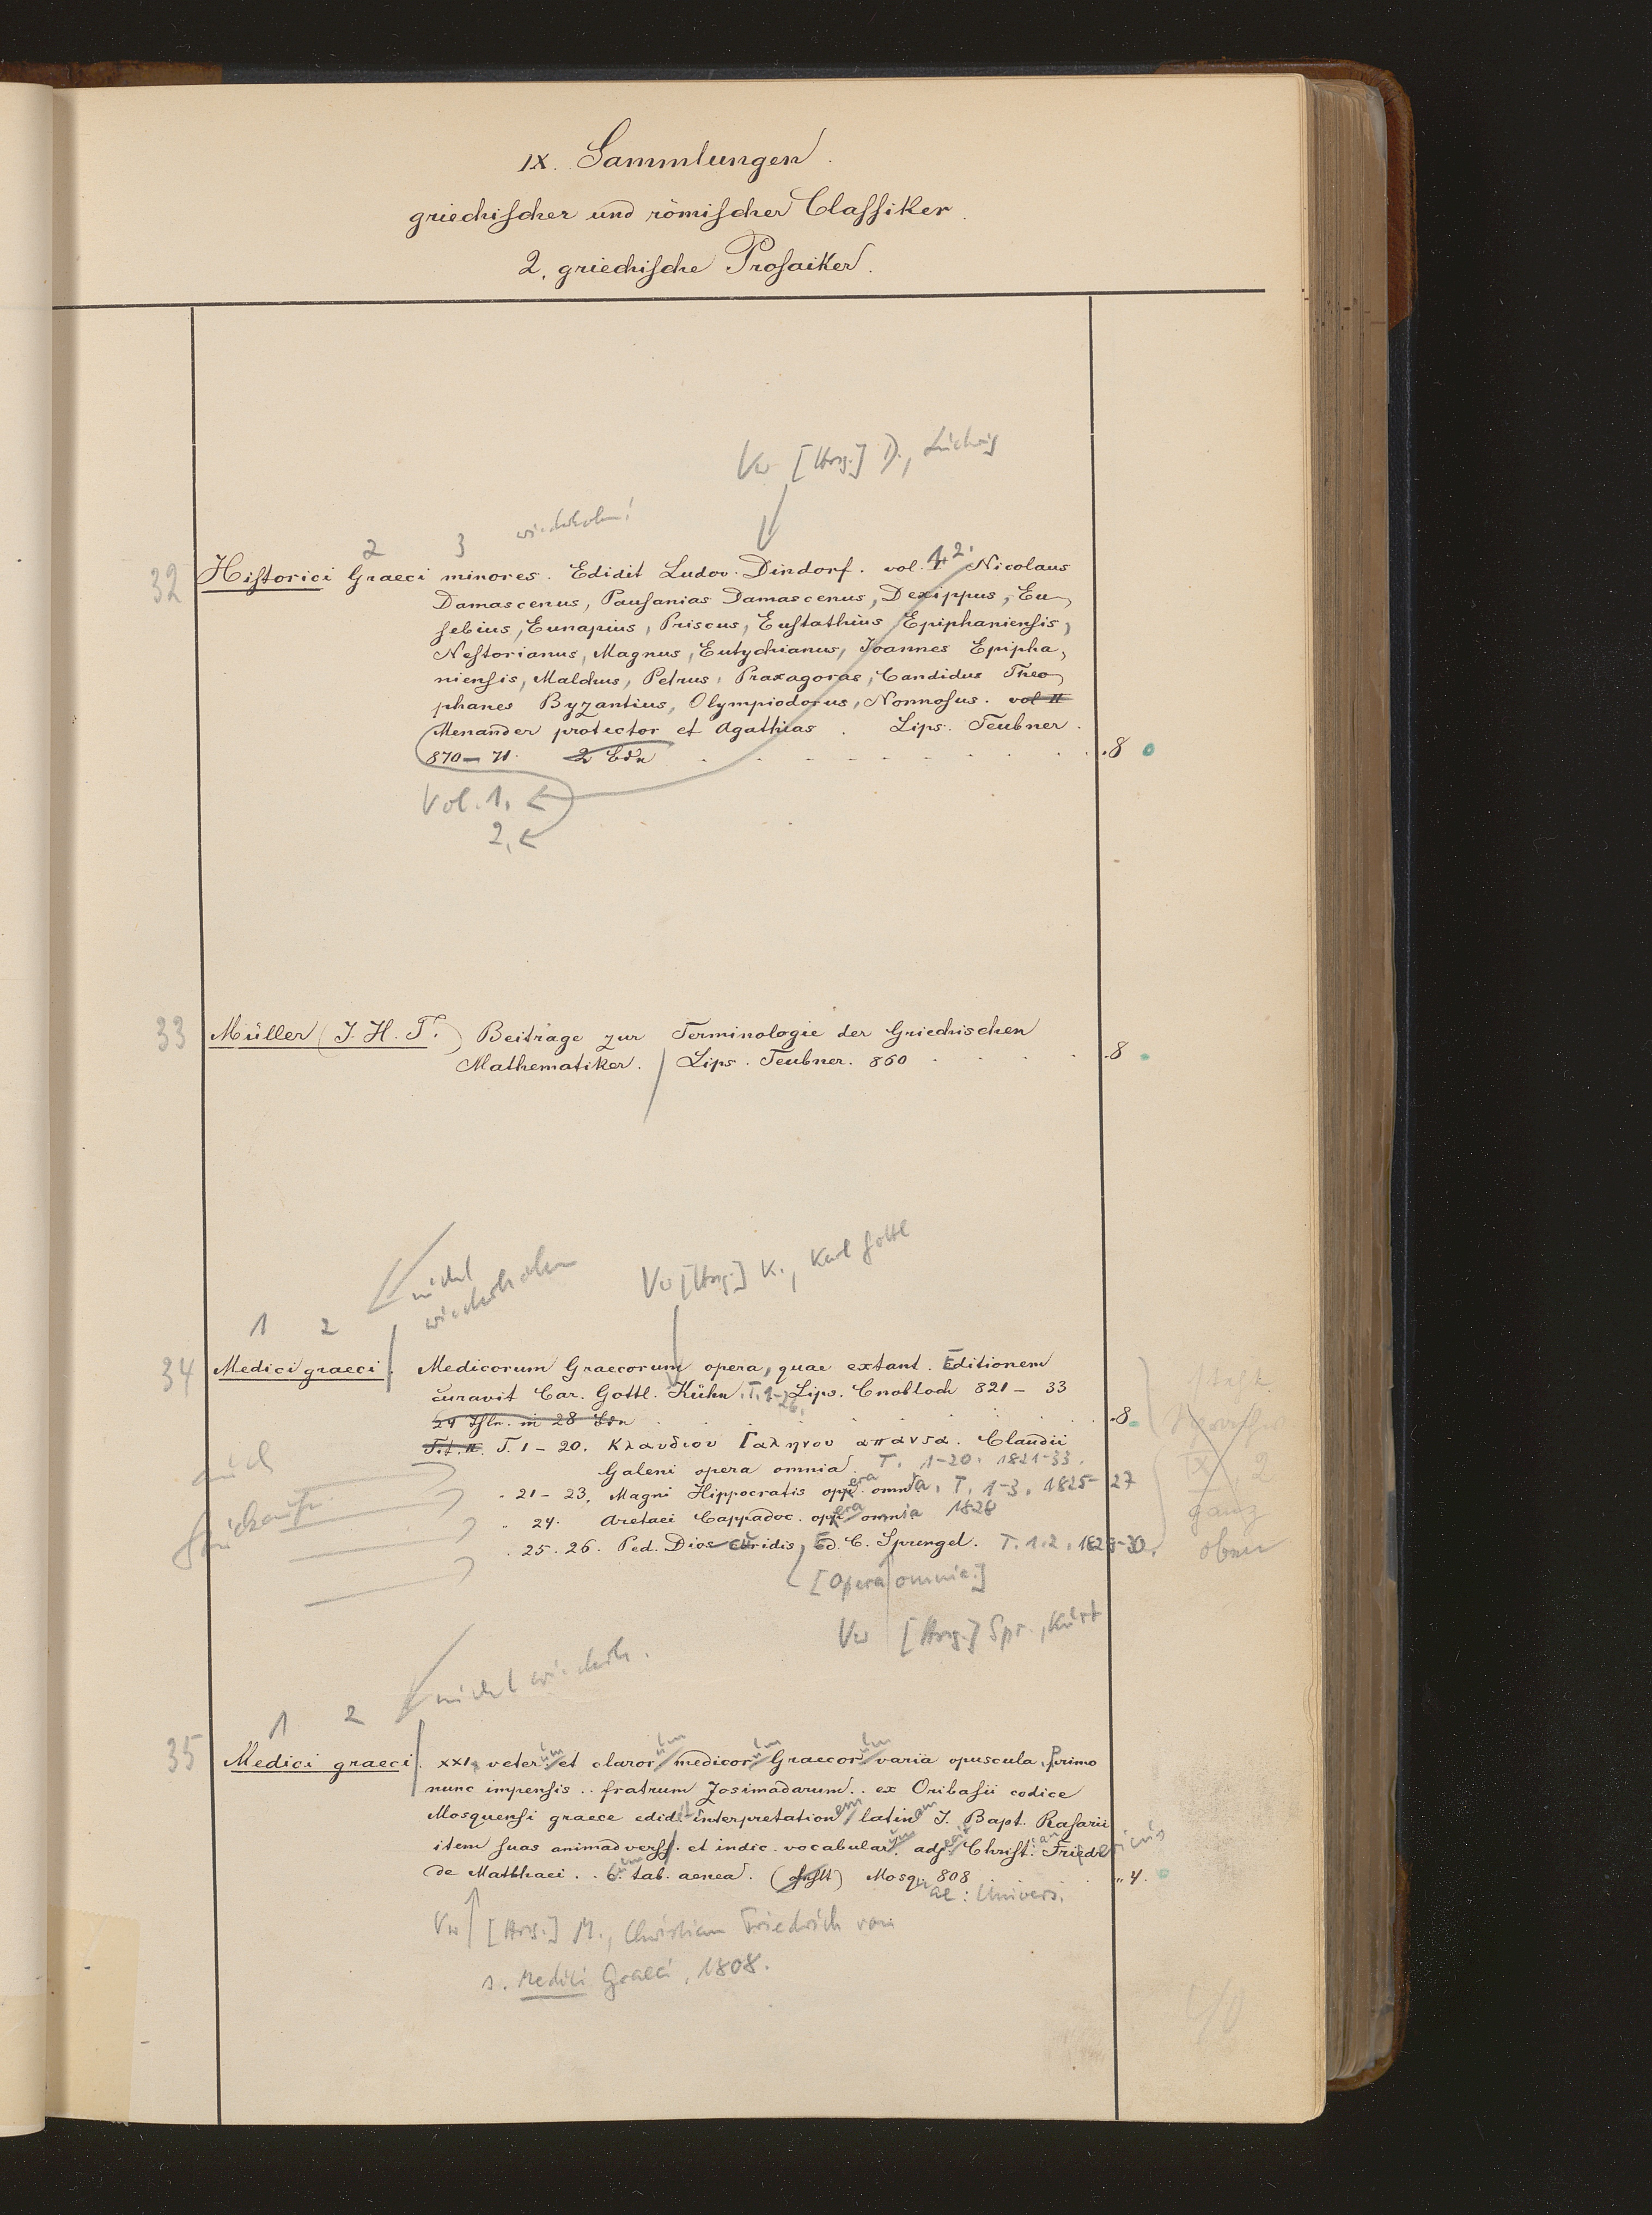 IX. Sammlungen.
griechischer und römischer Classiker.
2. griechische Prosaiker.
Vw [Hrsg.] D., Ludwig
wiederholen!
2 3
32 Historici Graeci minores. Edidit Ludov. Dindorf. vol. 1. 2. Nicolaus
Damascenus, Pausanias Damascenus, Dexippus, Eu-
sebius, Eunapius, Priscus, Eustathius Epiphaniensis,
Nestorianus, Magnus, Eutychianus, Joannes Epipha-
niensis, Malchus, Petrus, Praxagoras, Candidus Theo-
phanes Byzantius, Olympiodorus, Nonnosus. vol II
Menander protector et Agathias. Lips. Teubner.
870–71. 2 Bde 8
Vol. 1.
2.
33 Müller (J. H. T.) Beiträge zur Terminologie der Griechischen
Mathematiker. Lips. Teubner. 860 8
nicht
wiederholen
Vw [Hrsg.] K., Karl Gottl
1 2
34 Medici graeci. Medicorum Graecorum opera, quae extant. Editionem
curavit Car. Gottl. Kühn. T. 1-26. Lips. Cnobloch 821–33
29 Thle. in 28 Bdn 8
T. 1–20. Κλαυδιου Γαληνου απαντα. Claudii
Galeni opera omnia. T. 1-20. 1821-33.
21–23. Magni Hippocratis opera omnia. T. 1-3. 1825-27
24. Aretaei Cappadoc. opera omnia 1828
25. 26. Ped. Dioscuridis, Ed. C. Sprengel. T. 1. 2. 1829-30.
[Opera omnia.]
Vw [Hrsg.] Spr., Kurt
IX, 2
ganz
oben
nicht wiederh.
1 2
35 Medici graeci. XXI veterum et clarorum medicorum Graecorum varia opuscula. Primo
nunc impensis .. fratrum Zosimadarum .. ex Oribasii codice
Mosquensi graece edidit interpretationem latinam J. Bapt. Rasarii
item suas animadverss. et indic. vocabularum adjecit Christian. Friedericus
de Matthaei .. Cum tab. aenea. Mosquae: Univers. 808 4.
Vw [Hrsg.] M., Christian Friedrich von
s. Medici Graeci, 1808.